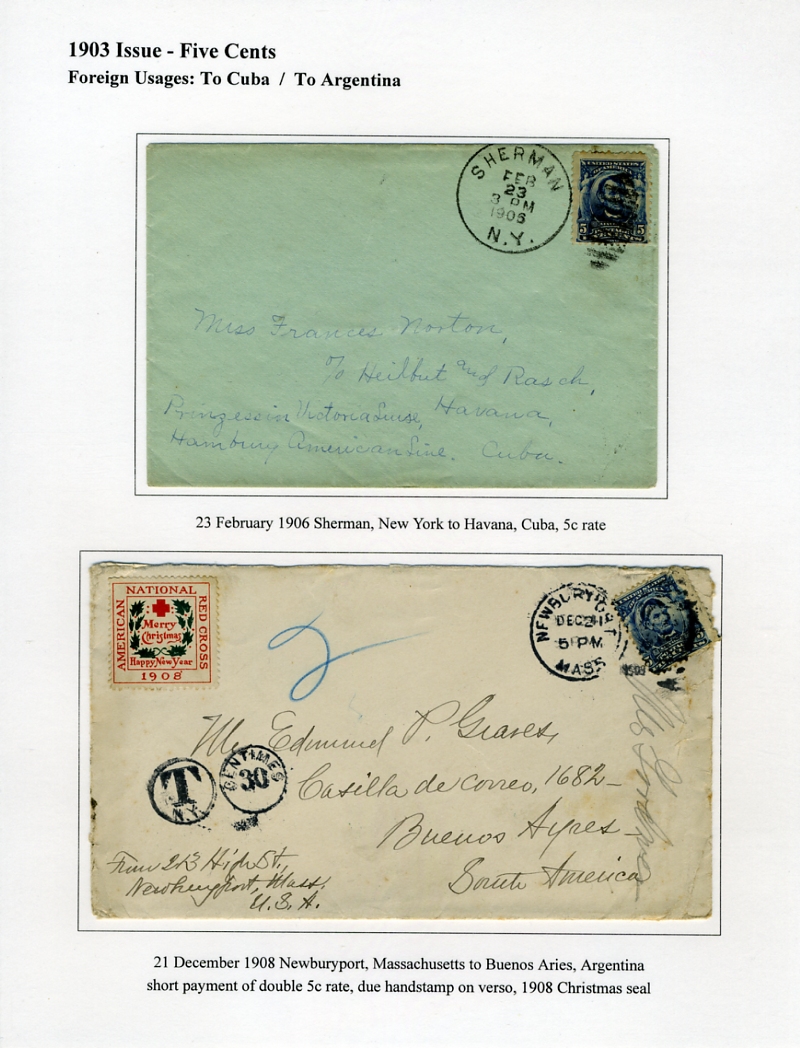 1903 Issue - Five Cents
Foreign Usages: To Cuba / To Argentina
SHERMAN
FEB
23
3 PM
1906
N.Y.
UNITED STATES
OF AMERICA
5 5
Miss Frances Norton,
c/o Heilbut and Rasch,
Prinzessin Victoria Luise, Havana,
Hamburg American Line. Cuba.
23 February 1906 Sherman, New York to Havana, Cuba, 5c rate
AMERICAN NATIONAL RED CROSS
Merry
Christmas
Happy New Year
1908
NEWBURYPORT
DEC 21
5 PM
MASS
Mr Edmund P. Graves,
Casilla de correo, 1682–
Buenos Ayres–
South America
T
N.Y.
CENTIMES
30
From 213 High St.,
Newburyport, Mass,
U.S.A.
21 December 1908 Newburyport, Massachusetts to Buenos Aries, Argentina
short payment of double 5c rate, due handstamp on verso, 1908 Christmas seal